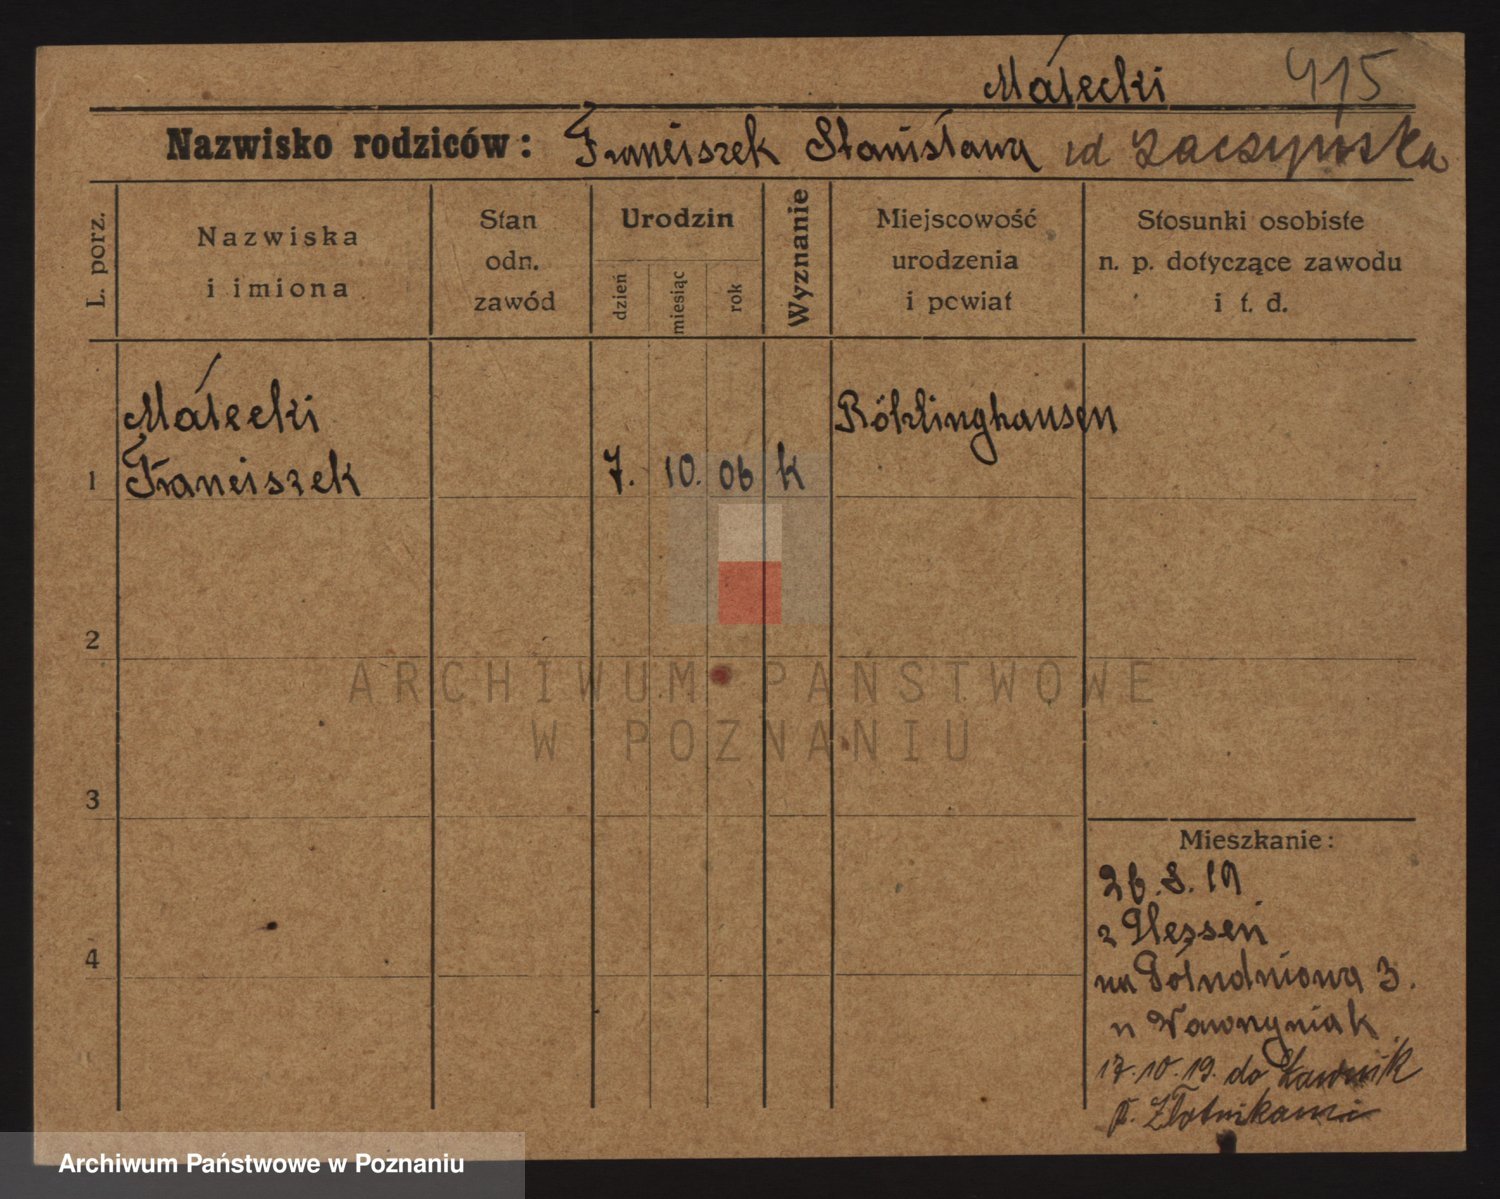 Małecki 415
Nazwisko rodziców: Franciszek Stanisława zd Łaczyńska
L. porz.
Nazwiska
i imiona
Stan
odn.
zawód
Urodzin
dzień
miesiąc
rok
Wyznanie
Miejscowość
urodzenia
i powiat
Stosunki osobiste
n. p. dotyczące zawodu
i t. d.
Małecki
Röhlinghausen
1 Franciszek 7. 10. 06 k
2
ARCHIWUM PAŃSTWOWE
W POZNANIU
3
Mieszkanie:
26.8.19
z Hessen
4
na Południową 3.
u Wawrzyniak
17.10.19. do Ławnik
p. Złotnikami
Archiwum Państwowe w Poznaniu